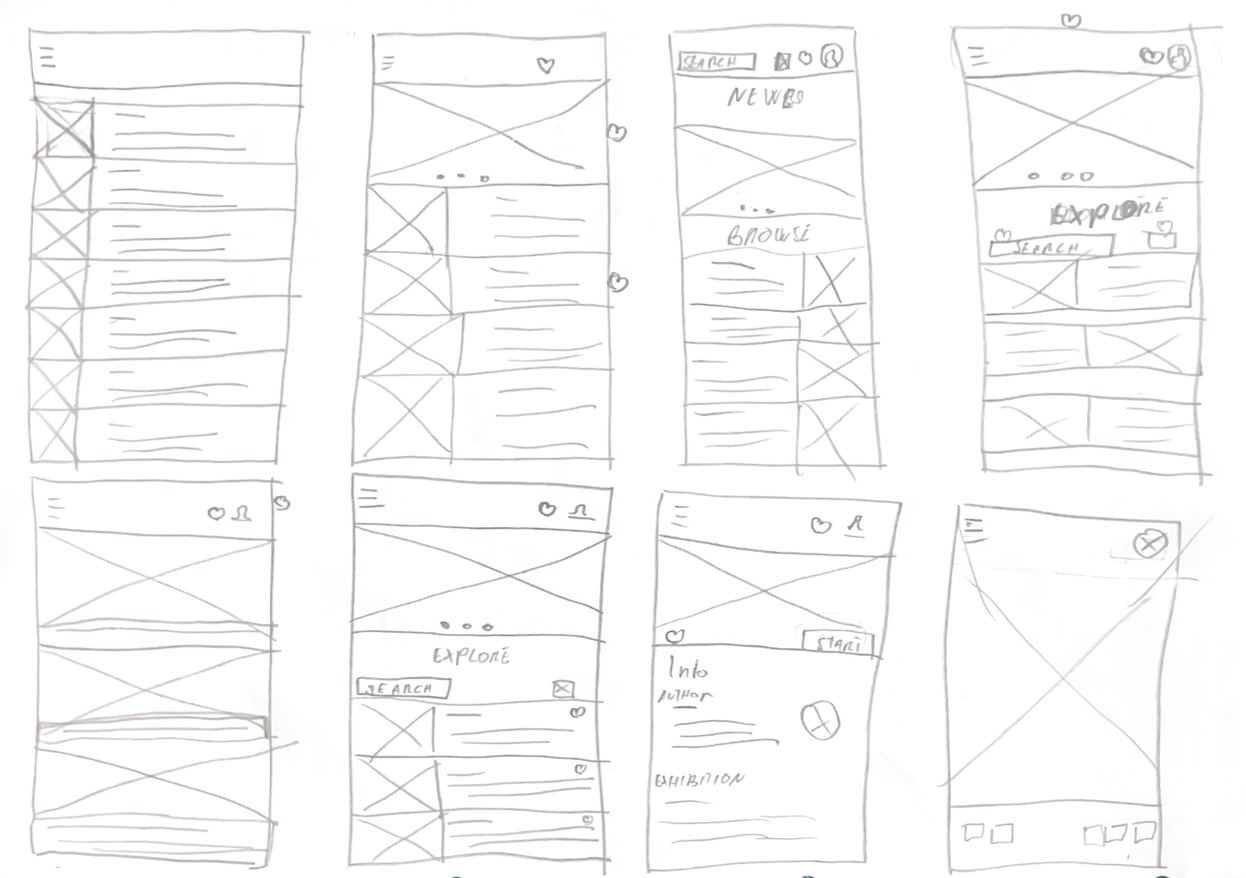 SEARCH
NEW
BROWSE
EXPLORE
SEARCH
EXPLORE
SEARCH
START
Info
AUTHOR
EXHIBITION